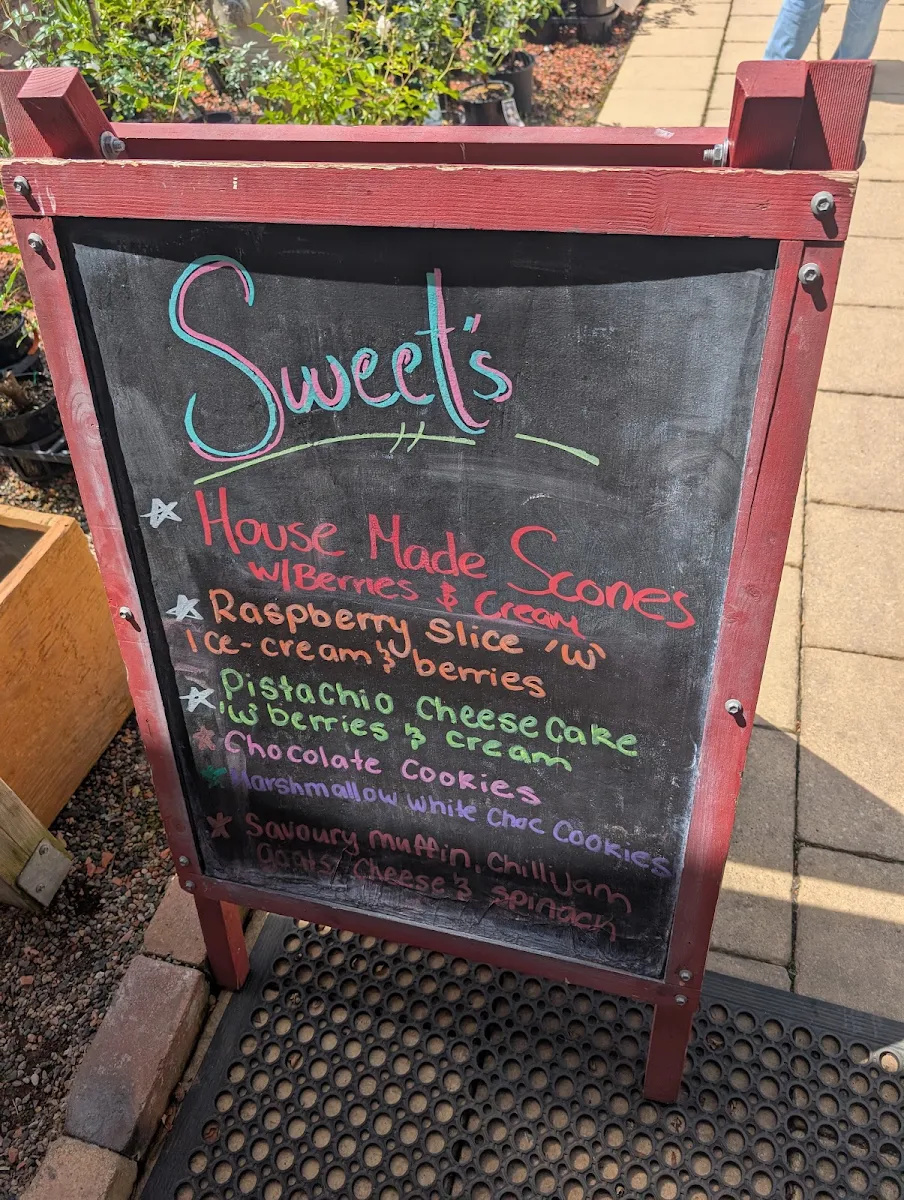 Sweet's
House Made Scones
w/Berries & Cream
Raspberry Slice 'w'
Ice-cream & berries
Pistachio CheeseCake
'w' berries & cream
Chocolate Cookies
Marshmallow White Choc Cookies
Savoury Muffin, Chilli jam
goats cheese & spinach